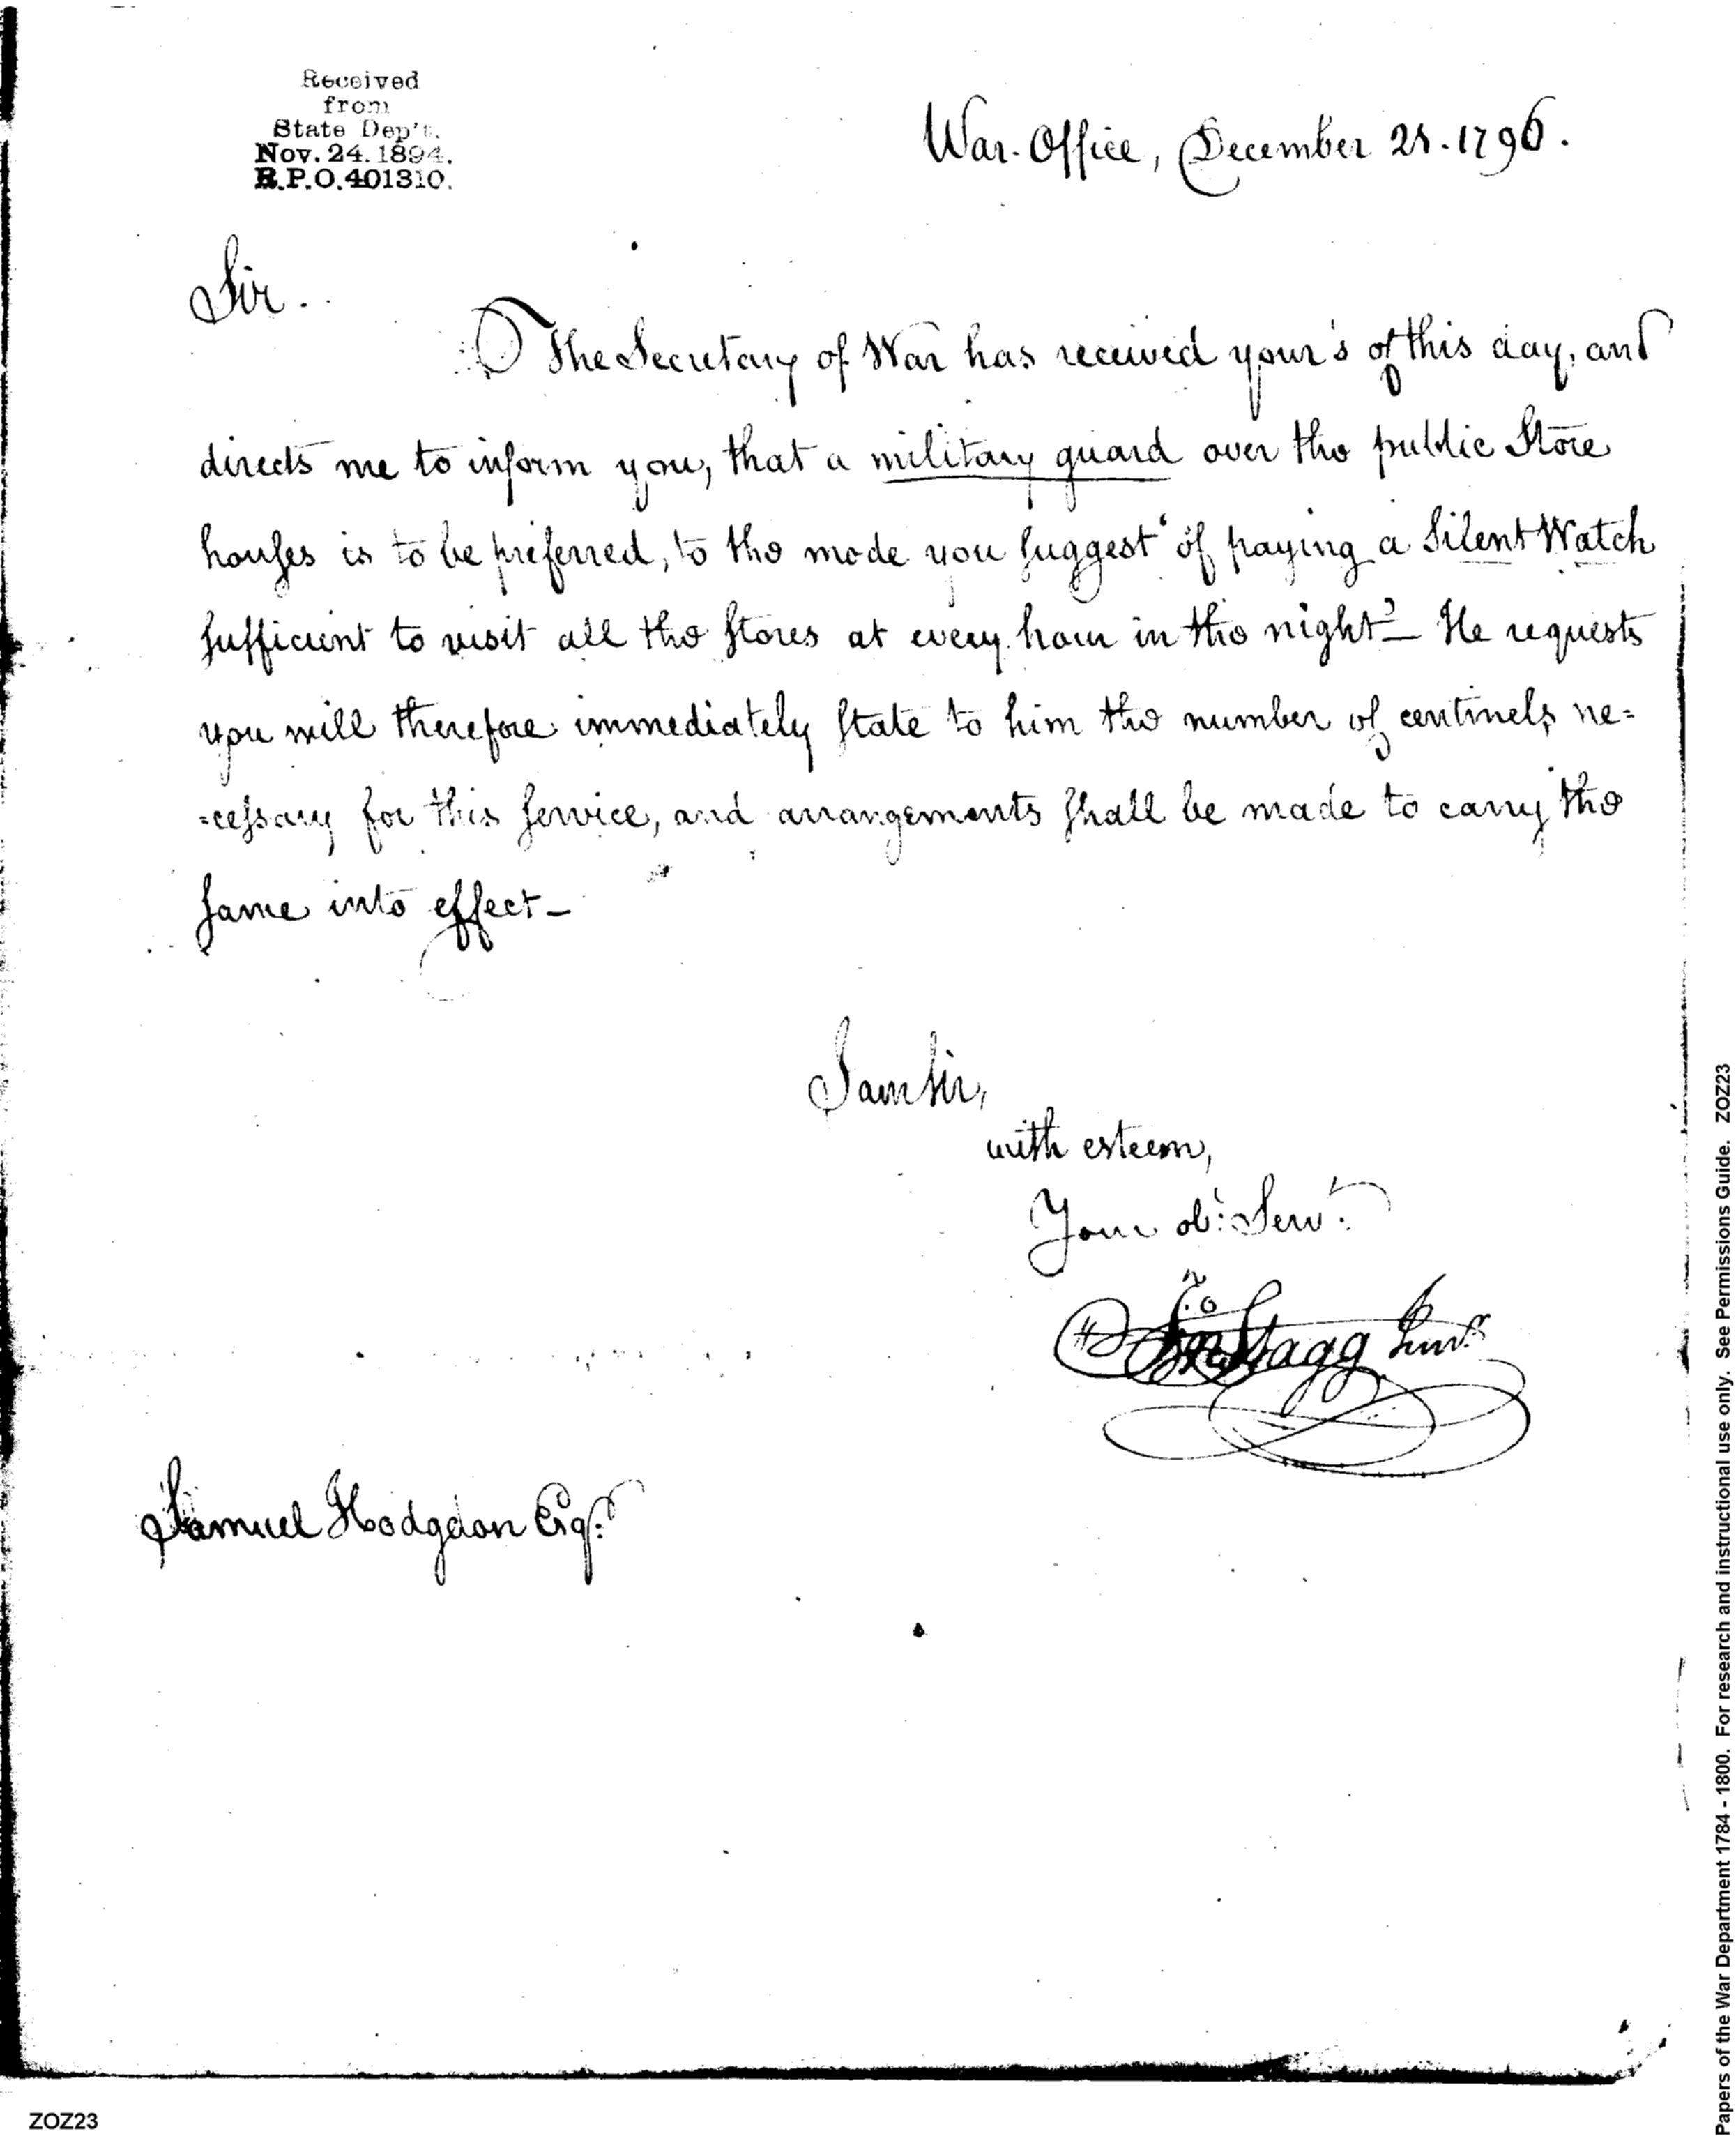 Received
from
State Dep't.
Nov. 24. 1894.
R.P.O. 401310.
War-Office, December 28. 1796.
Sir.
The Secretary of War has received your's of this day, and
directs me to inform you, that a military guard over the public Store
houses is to be preferred, to the mode you suggest "of paying a Silent Watch
sufficient to visit all the stores at every hour in the night" — He requests
you will therefore immediately state to him the number of centinels ne=
=cessary for this service, and arrangements shall be made to carry the
same into effect —
I am Sir,
with esteem,
Your ob: Serv.t
Jno Stagg Junr.
Samuel Hodgdon Esqr.
Papers of the War Department 1784 - 1800. For research and instructional use only. See Permissions Guide. ZOZ23
ZOZ23